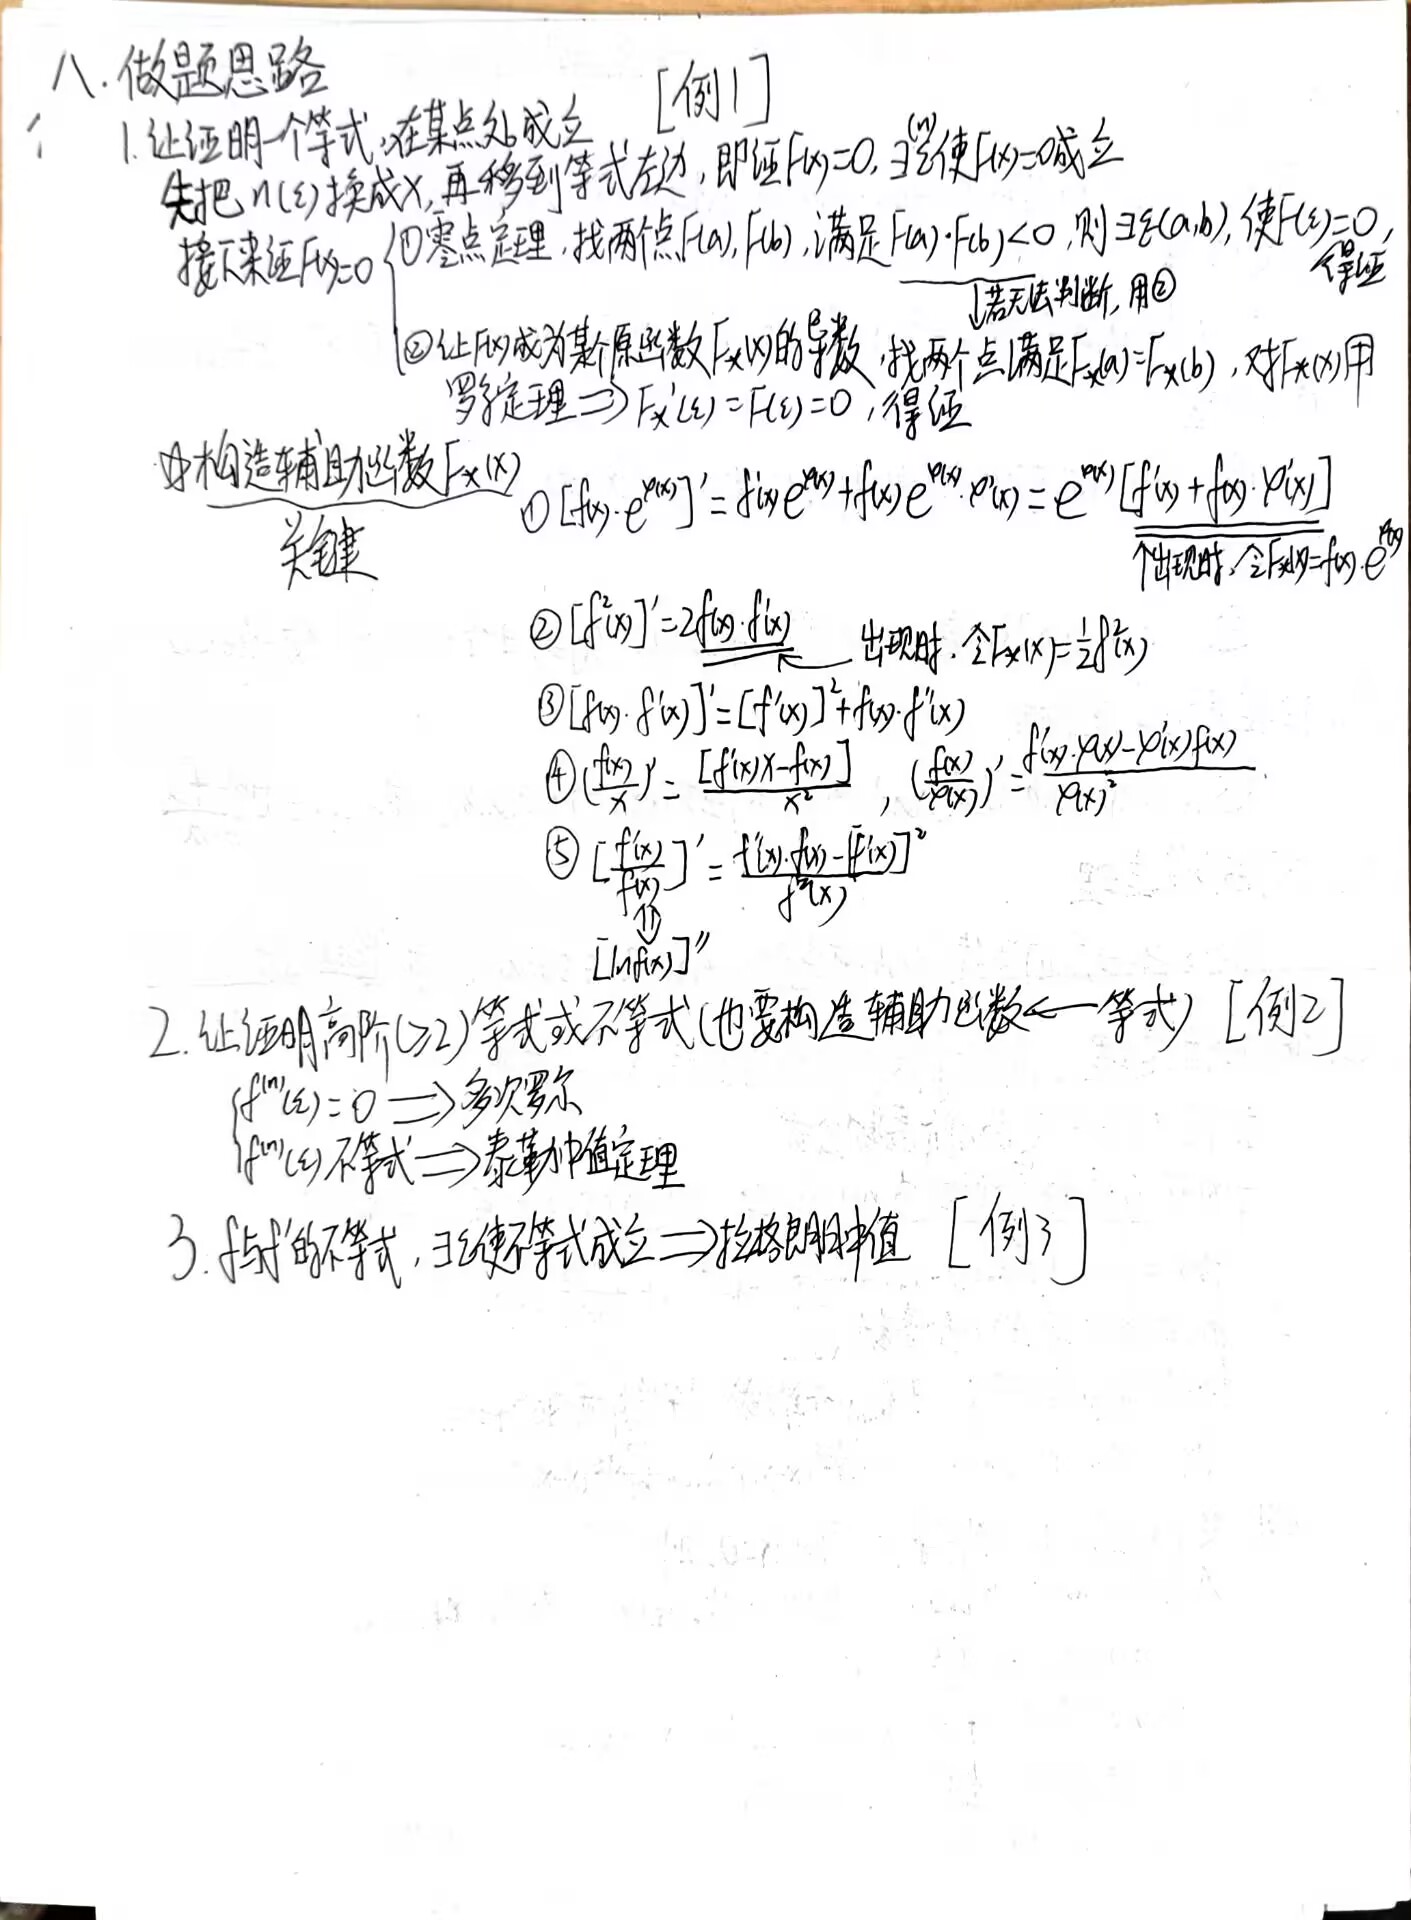 八.做题思路
[例1]
1.让证明一个等式,在某点处成立
先把η(ξ)换成x,再移到等式左边,即证F(x)=0,∃ξ(η)使F(x)=0成立
接下来证F(x)=0 ①零点定理,找两个点F(a),F(b),满足F(a)·F(b)<0,则∃ξ(a,b),使F(ξ)=0,
得证
↓若无法判断,用②
②让F(x)成为某个原函数F*(x)的导数,找两个点满足F*(a)=F*(b),对F*(x)用
罗尔定理⇒F*'(ξ)=F(ξ)=0,得证
☆构造辅助函数F*(x)
关键
①[f(x)·e^φ(x)]'=f'(x)e^φ(x)+f(x)e^φ(x)·φ'(x)=e^φ(x)[f'(x)+f(x)·φ'(x)]
↑出现时,令F*(x)=f(x)·e^φ(x)
②[f²(x)]'=2f(x)·f'(x) ← 出现时,令F*(x)=½f²(x)
③[f(x)·f'(x)]'=[f'(x)]²+f(x)·f''(x)
④(f(x)/x)'=[f'(x)x-f(x)]/x² , (f(x)/φ(x))'=f'(x)·φ(x)-φ'(x)f(x)/φ(x)²
⑤[f'(x)/f(x)]'=f''(x)·f(x)-[f'(x)]²/f²(x)
⇓
[lnf(x)]''
2.让证明高阶(≥2)等式或不等式(也要构造辅助函数←等式) [例2]
f⁽ⁿ⁾(ξ)=0⇒多次罗尔
f⁽ⁿ⁾(ξ)不等式⇒泰勒中值定理
3.f与f'的不等式,∃ξ使不等式成立⇒拉格朗日中值 [例3]